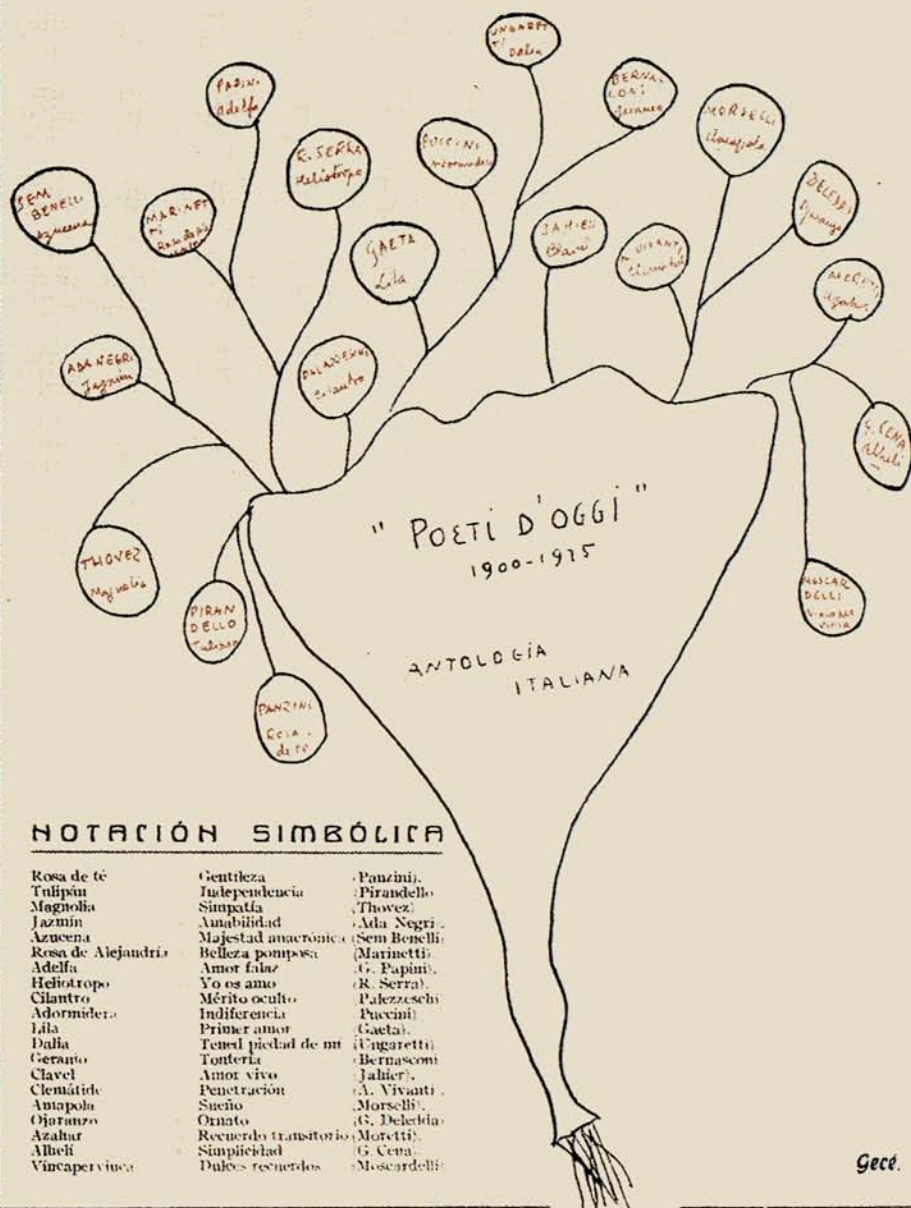 UNGARET
TI
Dalia
BERNAS
CONI
Geraneo
PAPINI
Adelfa
MORSELLI
Amapola
R. SERRA
Heliotropo
PUCCINI
SEM
BENELLI
Azucena
MARINET
TI
DELEDDA
Ojaranzo
GAETA
Lila
JAHIER
Clavel
A. VIVANTI
Clematide
MORETTI
Azahar
ADA NEGRI
Jazmín
PALAZZESCHI
Cilantro
G. CENA
Alhelí
" POETI D'OGGI "
1900-1925
THOVEZ
Magnolia
MOSCAR
DELLI
PIRAN
DELLO
Tulipan
ANTOLOGÍA
ITALIANA
PANZINI
Rosa
de té
NOTACIÓN SIMBÓLICA
Rosa de té Gentileza (Panzini).
Tulipán Independencia (Pirandello
Magnolia Simpatía (Thovez)
Jazmín Amabilidad (Ada Negri).
Azucena Majestad anacrónica (Sem Benelli)
Rosa de Alejandría Belleza pomposa (Marinetti).
Adelfa Amor falaz (G. Papini).
Heliotropo Yo os amo (R. Serra).
Cilantro Mérito oculto Palezzeschi
Adormidera Indiferencia Puccini)
Lila Primer amor (Gaeta).
Dalia Tened piedad de mi (Ungaretti)
Geranio Tontería (Bernasconi
Clavel Amor vivo (Jahier).
Clemátide Penetración (A. Vivanti).
Amapola Sueño (Morselli).
Ojaranzo Ornato (G. Deledda)
Azahar Recuerdo transitorio (Moretti).
Alhelí Simplicidad (G. Cena)
Vincapervinca Dulces recuerdos (Moscardelli)
Gecé.